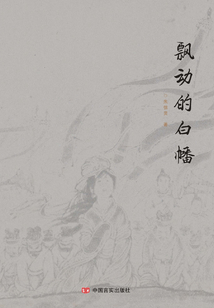 飘动的白幡
中国言实出版社